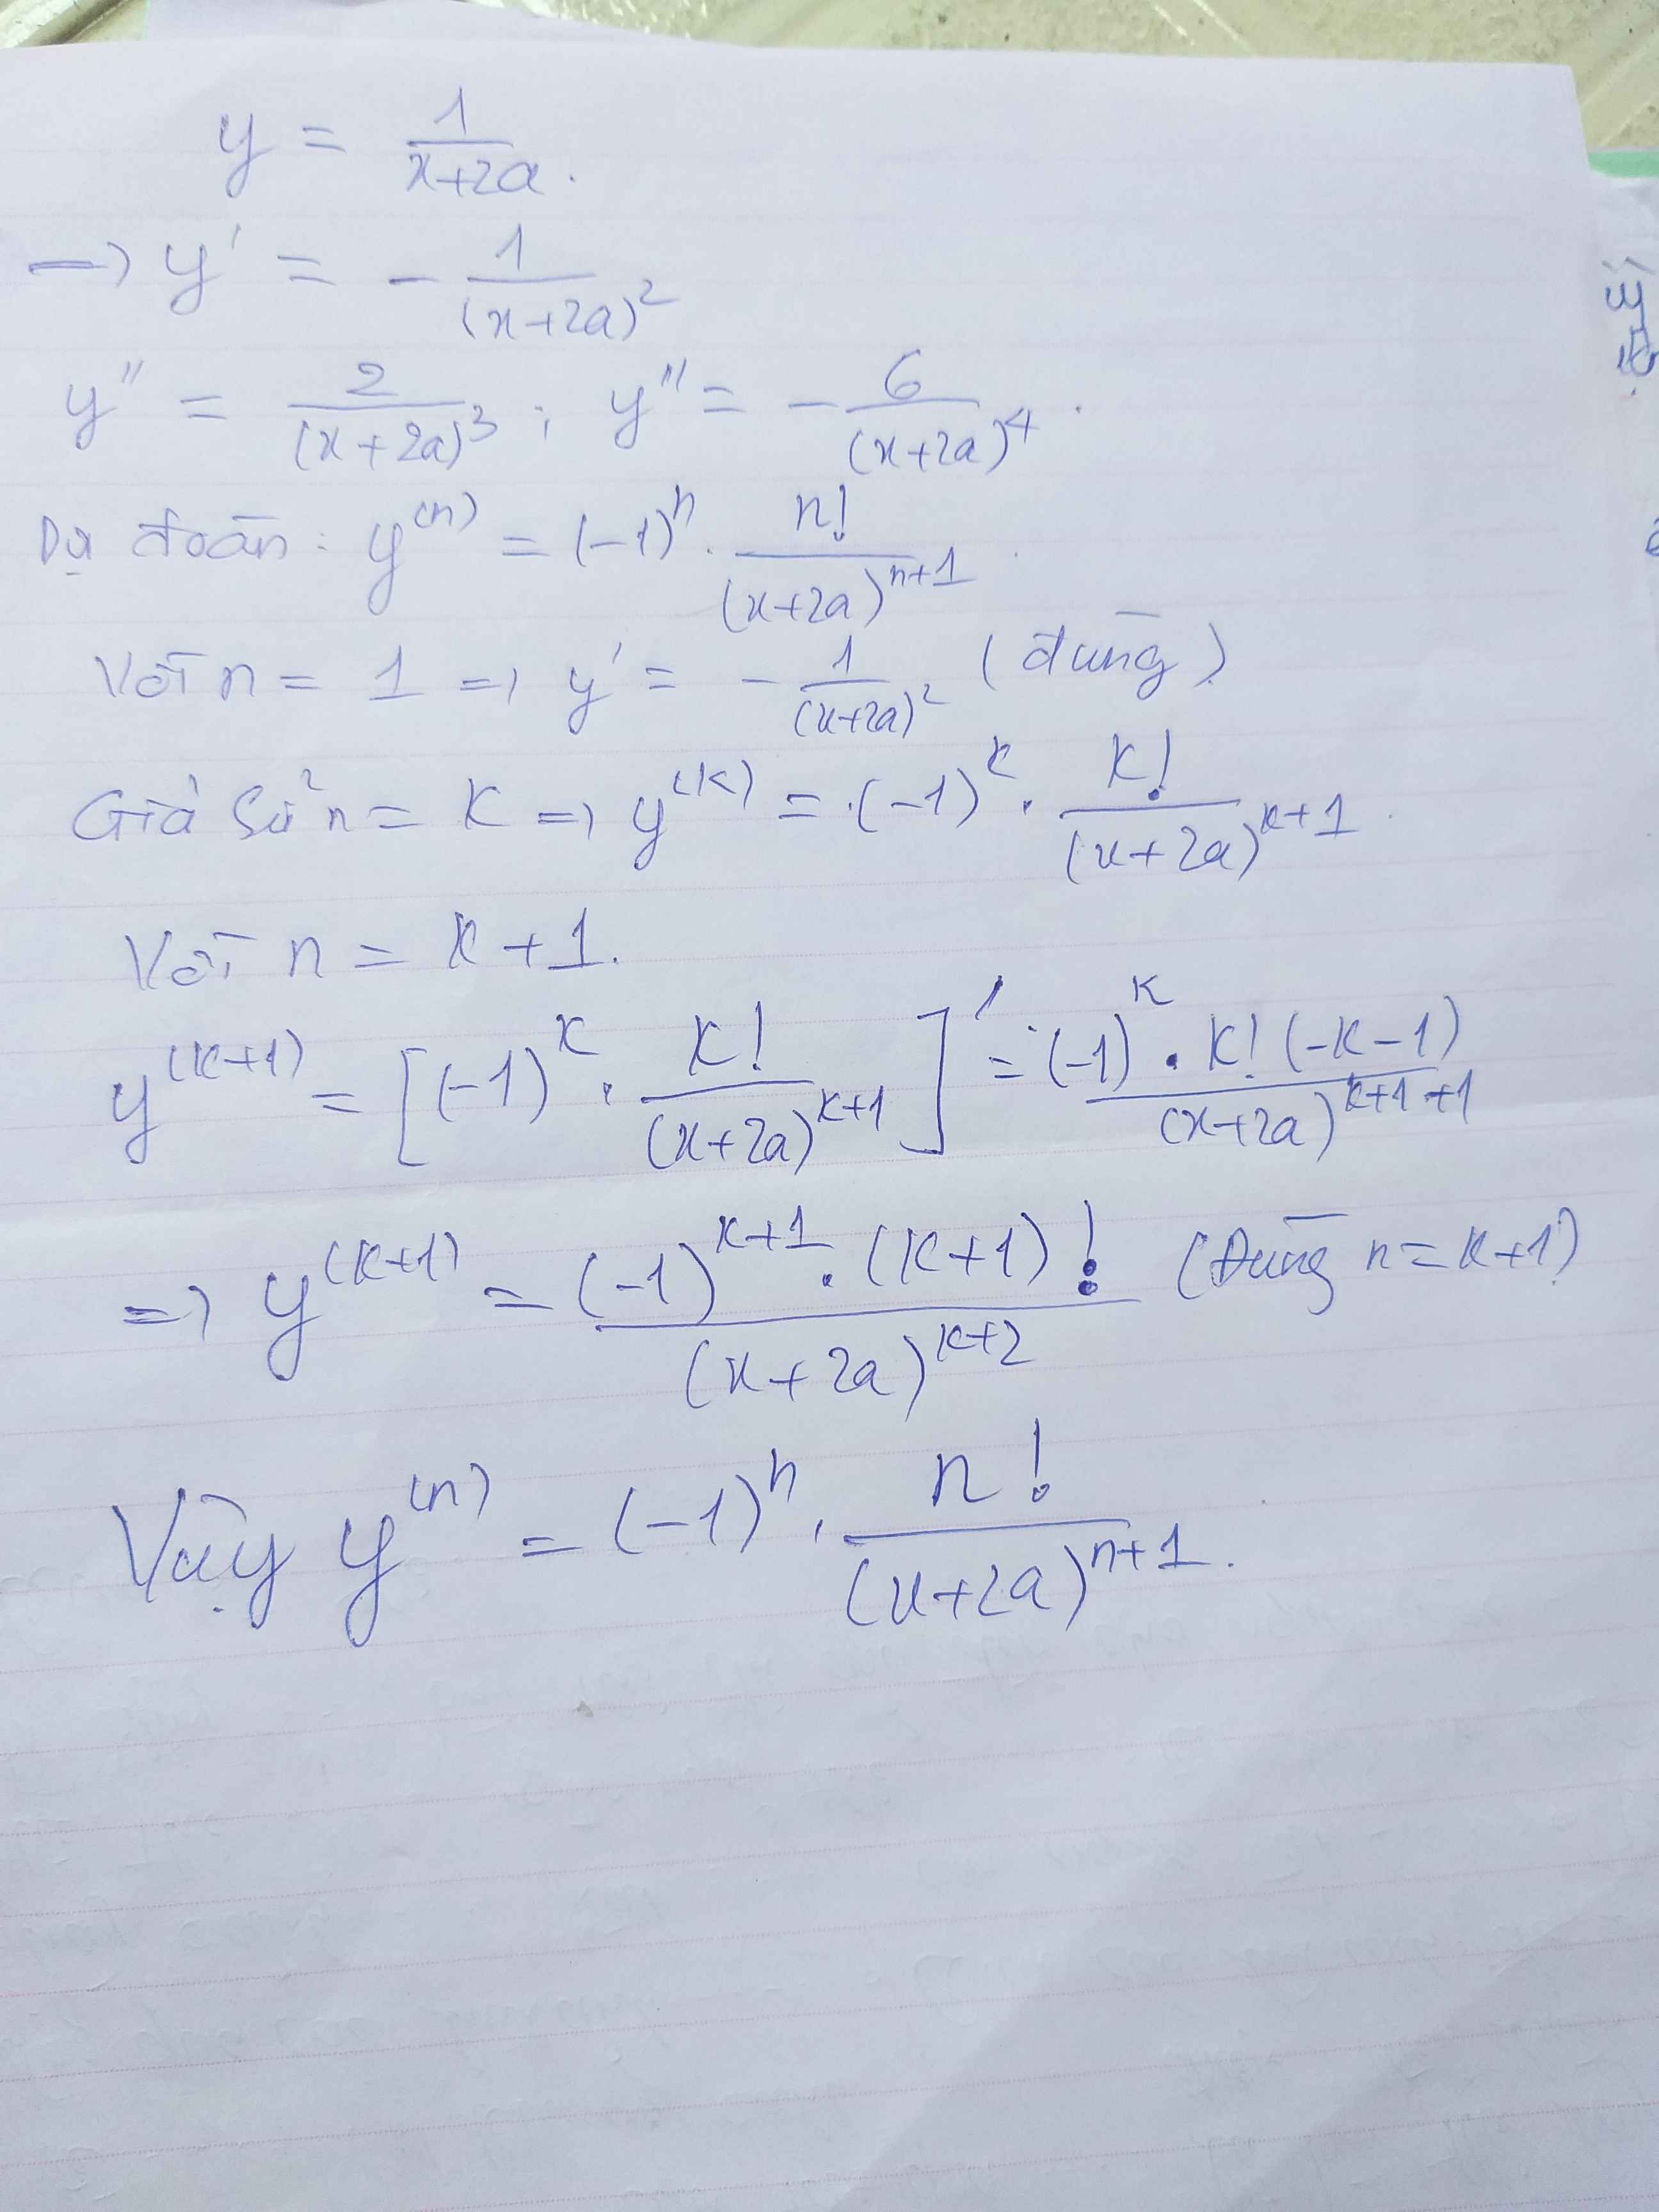 y = 1/(x+2a).
→ y' = - 1/(x+2a)^2
y'' = 2/(x+2a)^3 ; y''' = - 6/(x+2a)^4.
Dự đoán: y^(n) = (-1)^n . n!/(x+2a)^(n+1).
Với n = 1 => y' = - 1/(x+2a)^2 (đúng)
Giả sử n = k => y^(k) = (-1)^k . k!/(x+2a)^(k+1).
Với n = k+1.
y^(k+1) = [(-1)^k . k!/(x+2a)^(k+1)]' = (-1)^k . k! (-k-1)/(x+2a)^(k+1+1)
=> y^(k+1) = (-1)^(k+1) . (k+1)!/(x+2a)^(k+2) (Đúng n = k+1)
Vậy y^(n) = (-1)^n . n!/(x+2a)^(n+1).